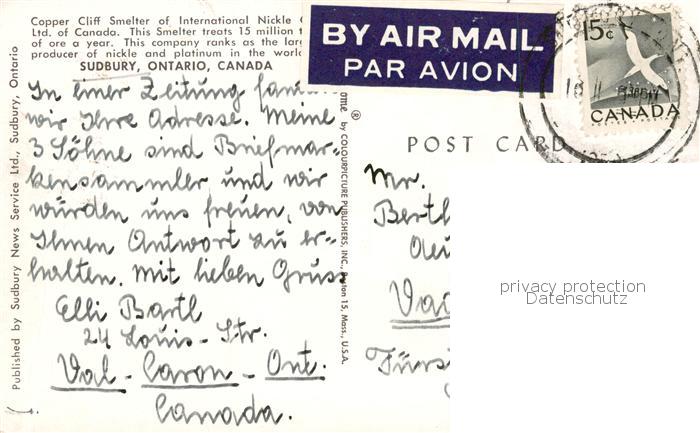 Copper Cliff Smelter of International Nickle
Ltd. of Canada. This Smelter treats 15 million
of ore a year. This company ranks as the
producer of nickle and platinum in the world
SUDBURY, ONTARIO, CANADA
In einer Zeitung
wir Ihre Adresse. Meine
3 Söhne sind Briefmar-
kensammler und wir
würden uns freuen, von
Ihnen Antwort zu er-
halten. Mit lieben Gruss
Elli Bartl
24 Louis-Str.
Val-Caron-Ont.
Canada.
Published by Sudbury News Service Ltd., Sudbury, Ontario
by COLOURPICTURE PUBLISHERS, INC., Boston 15, Mass., U.S.A.
BY AIR MAIL
PAR AVION
15c
CANADA
POST CARD
Mr.
privacy protection
Datenschutz